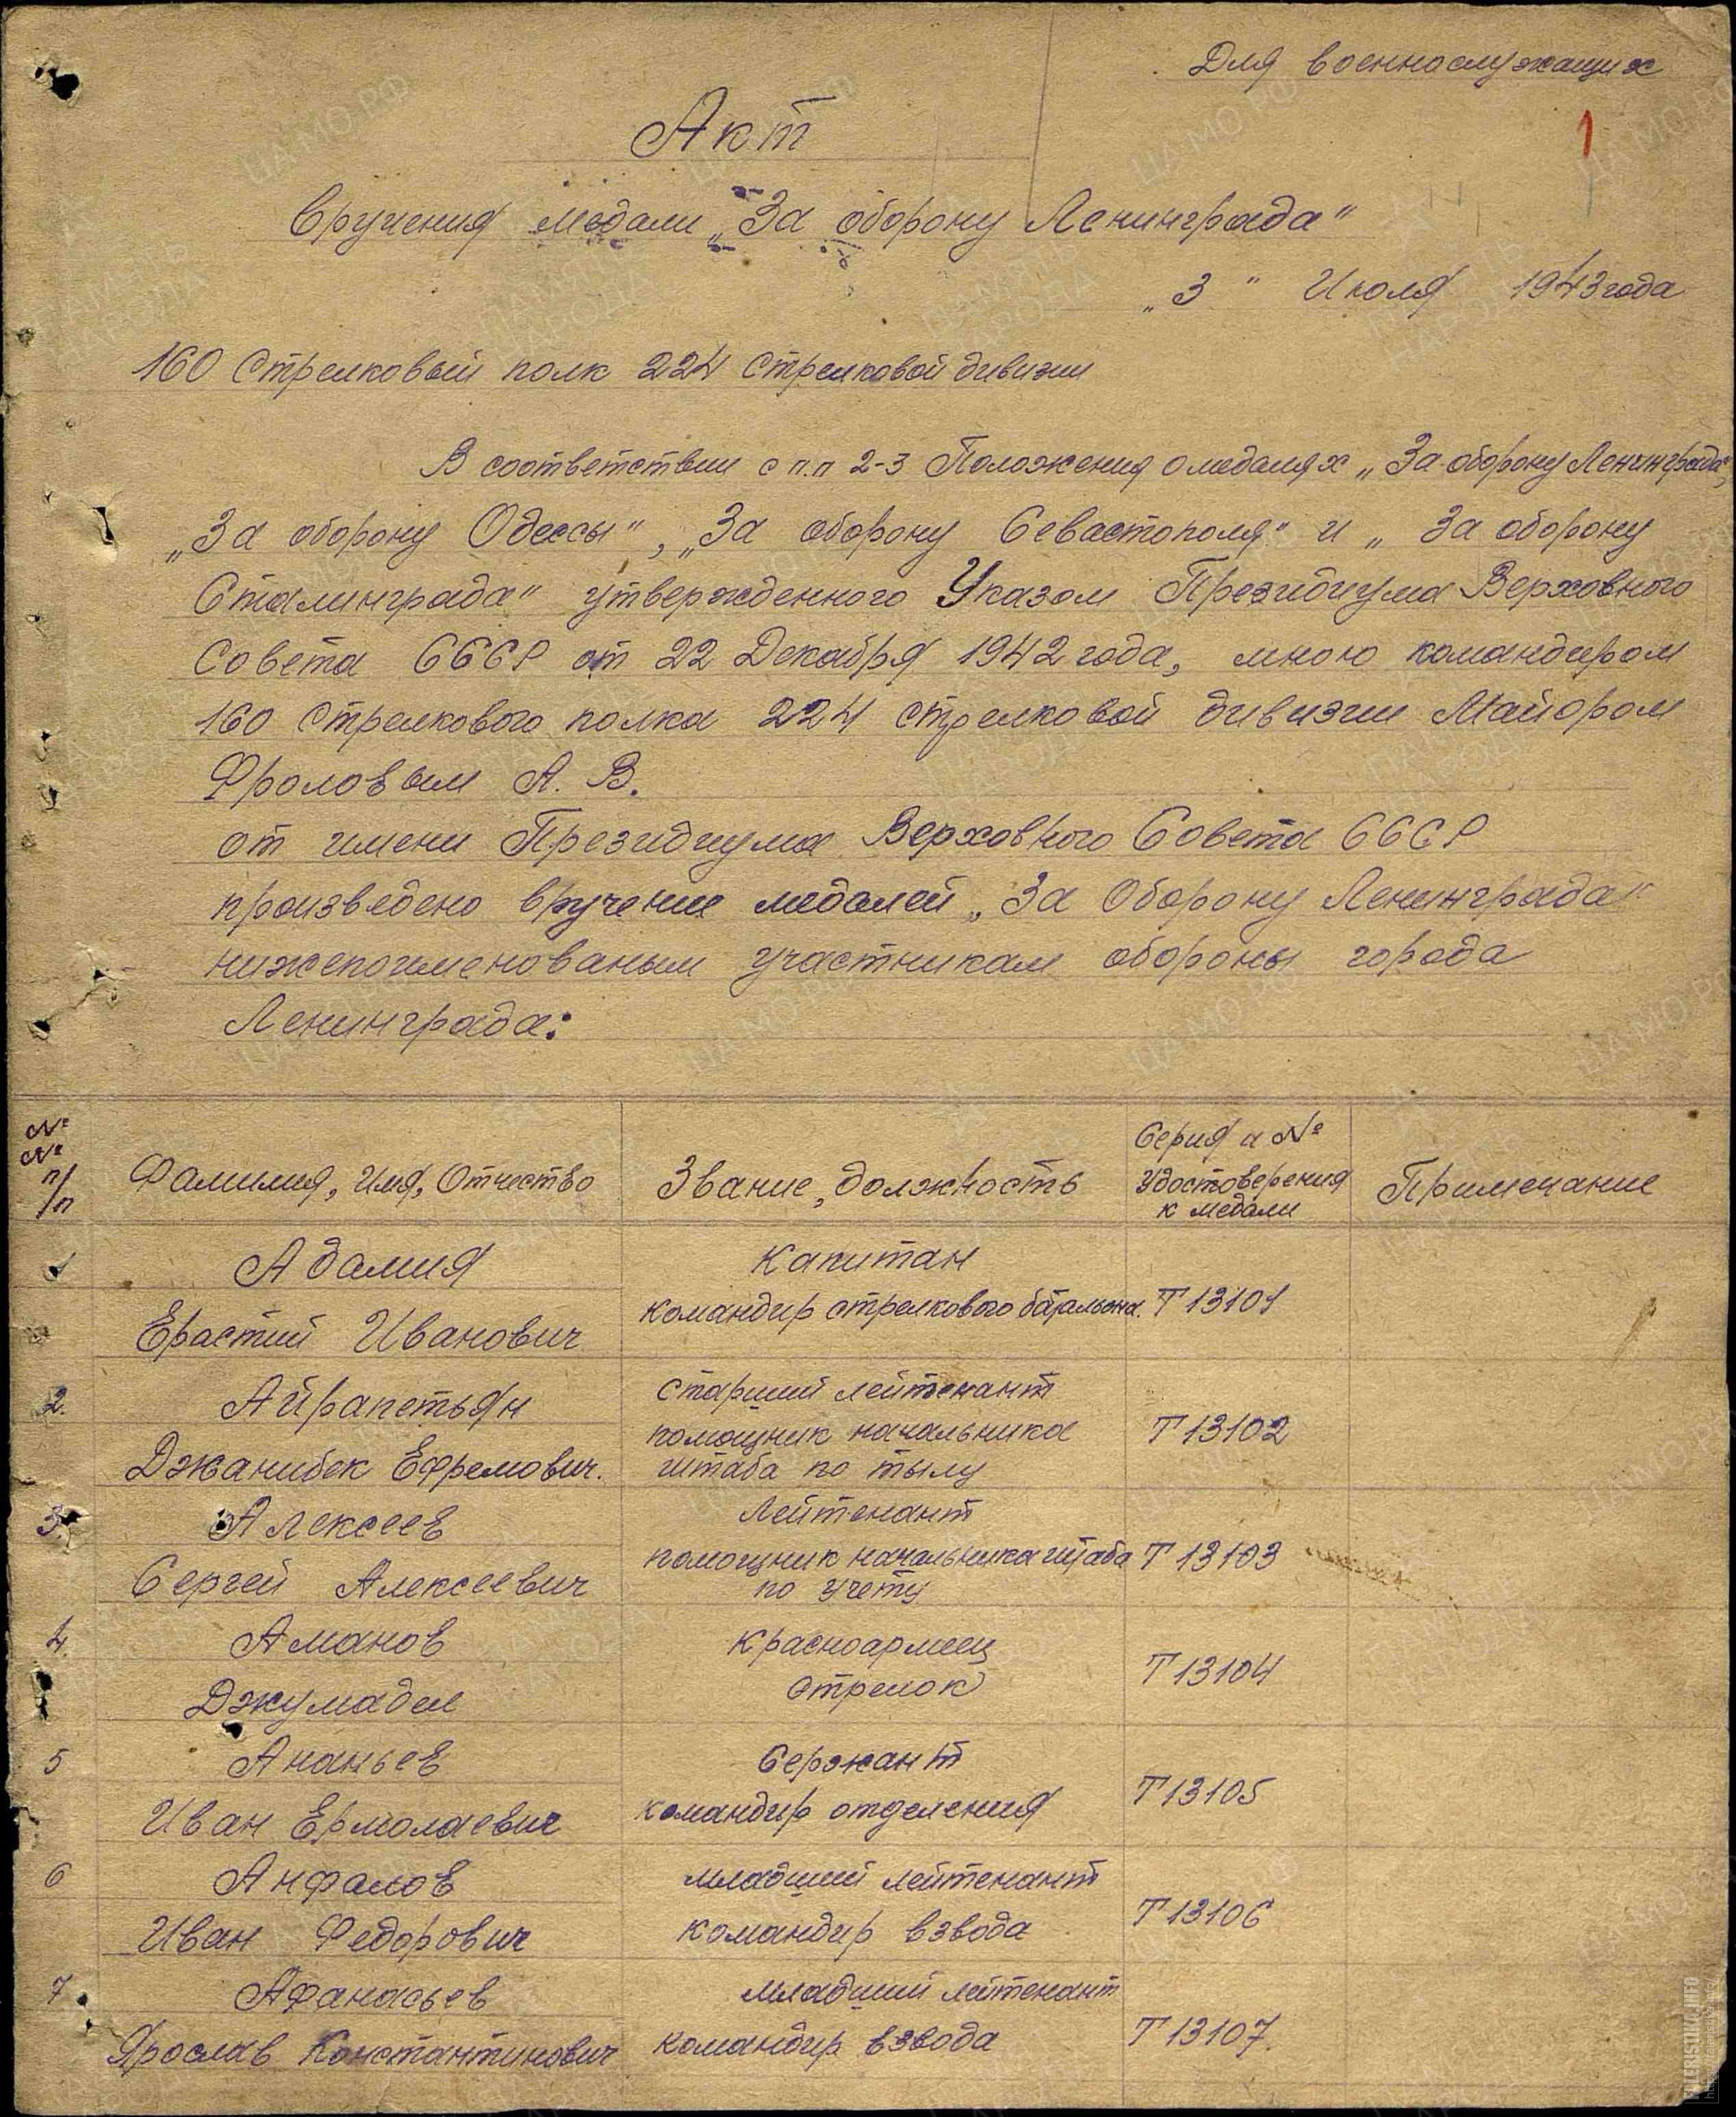 Для военнослужащих
1
Акт
Вручения медали „За оборону Ленинграда"
„3" Июля 1943 года
160 Стрелковый полк 224 Стрелковой дивизии
В соответствии с п.п 2-3 Положения о медалях „За оборону Ленинграда",
„За оборону Одессы", „За оборону Севастополя" и „За оборону
Сталинграда" утвержденного Указом Президиума Верховного
Совета СССР от 22 Декабря 1942 года, мною командиром
160 Стрелкового полка 224 стрелковой дивизии Майором
Фроловым А. В.
от имени Президиума Верховного Совета СССР
произведено вручение медалей „За Оборону Ленинграда"
нижепоименованым участникам обороны города
Ленинграда:
№ № п/п Фамилия, Имя, Отчество Звание, должность Серия и № Удостоверения к медали Примечание
1 Адамия Капитан
Ерастий Иванович командир стрелкового батальона. Т 13101
2. Айрапетьян Старший лейтенант
Джанибек Ефремович. помощник начальника Т 13102
штаба по тылу
3. Алексеев Лейтенант
Сергей Алексеевич помощник начальника штаба Т 13103
по учету
4. Аманов Красноармеец
Джумадел Стрелок Т 13104
5 Ананьев Сержант
Иван Ермолаевич командир отделения Т 13105
6 Анфалов младший лейтенант
Иван Федорович командир взвода Т 13106
7. Афанасьев младший лейтенант
Ярослав Константинович командир взвода Т 13107.